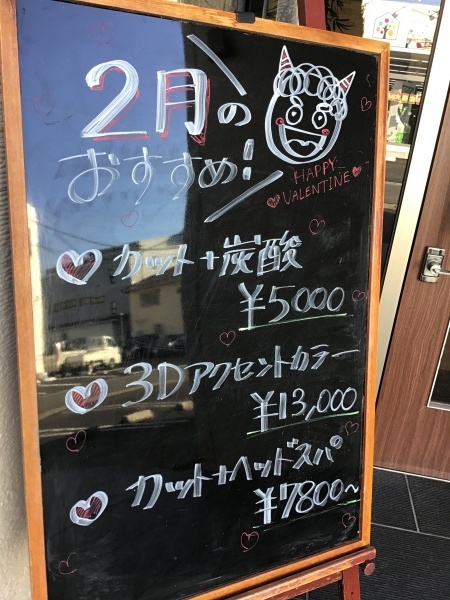 2月の
おすすめ!
HAPPY
VALENTINE
カット+炭酸
¥5000
3Dアクセントカラー
¥13,000
カット+ヘッドスパ
¥7800~